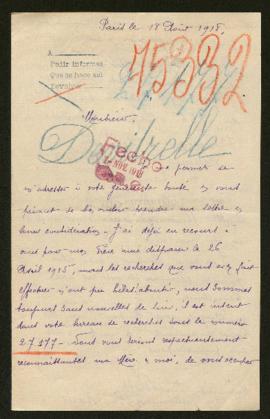 Paris le 18 Août 1915.
A
Pedir informes
Que se hace aqui
Devolver
75332
Monsieur,
Delzelle
Recibido
me permets de
m'adresser à votre généreuse bonté en vous
priant de bien vouloir prendre ma lettre en
bonne considération. J'ai déjà eu recours à
vous pour mon frère mine disparu le 26
Avril 1915, mais les recherches que vous avez fait
effectuer n'ont pu hélas! aboutir, nous sommes
toujours sans nouvelles de lui, il est inscrit
dans votre bureau de recherches sous le numéro
27.177. Nous vous serions respectueusement
reconnaissantes ma Mère & moi, de vous occuper